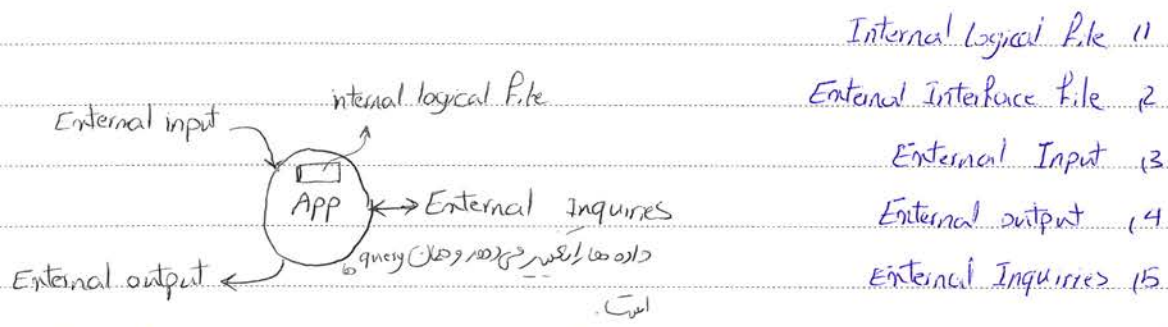 Internal Logical File (1
External Interface File (2
External Input (3
External output (4
External Inquiries (5
nternal logical File
External input
App
External Inquiries
داده ها می دهد و همان query ها
است.
External output